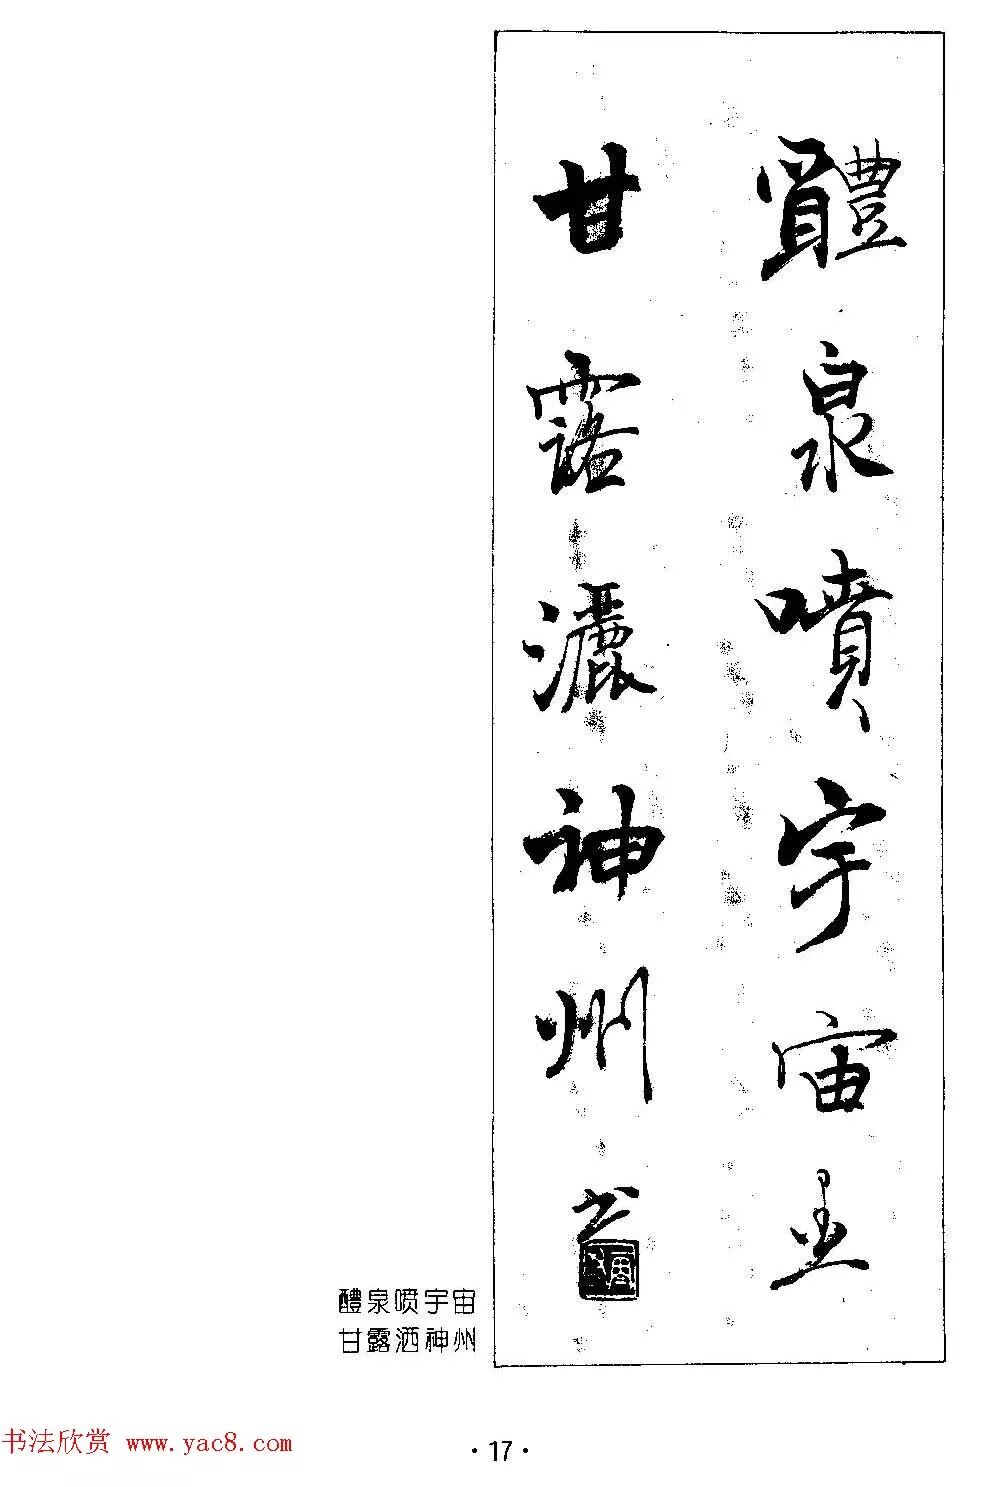 醴泉噴宇宙
甘露灑神州
书
醴泉喷宇宙
甘露洒神州
书法欣赏 www.yac8.com
·17·